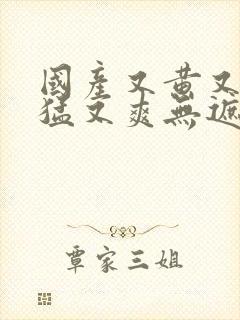 國產又黃又
猛又爽無遮
覃家三姐